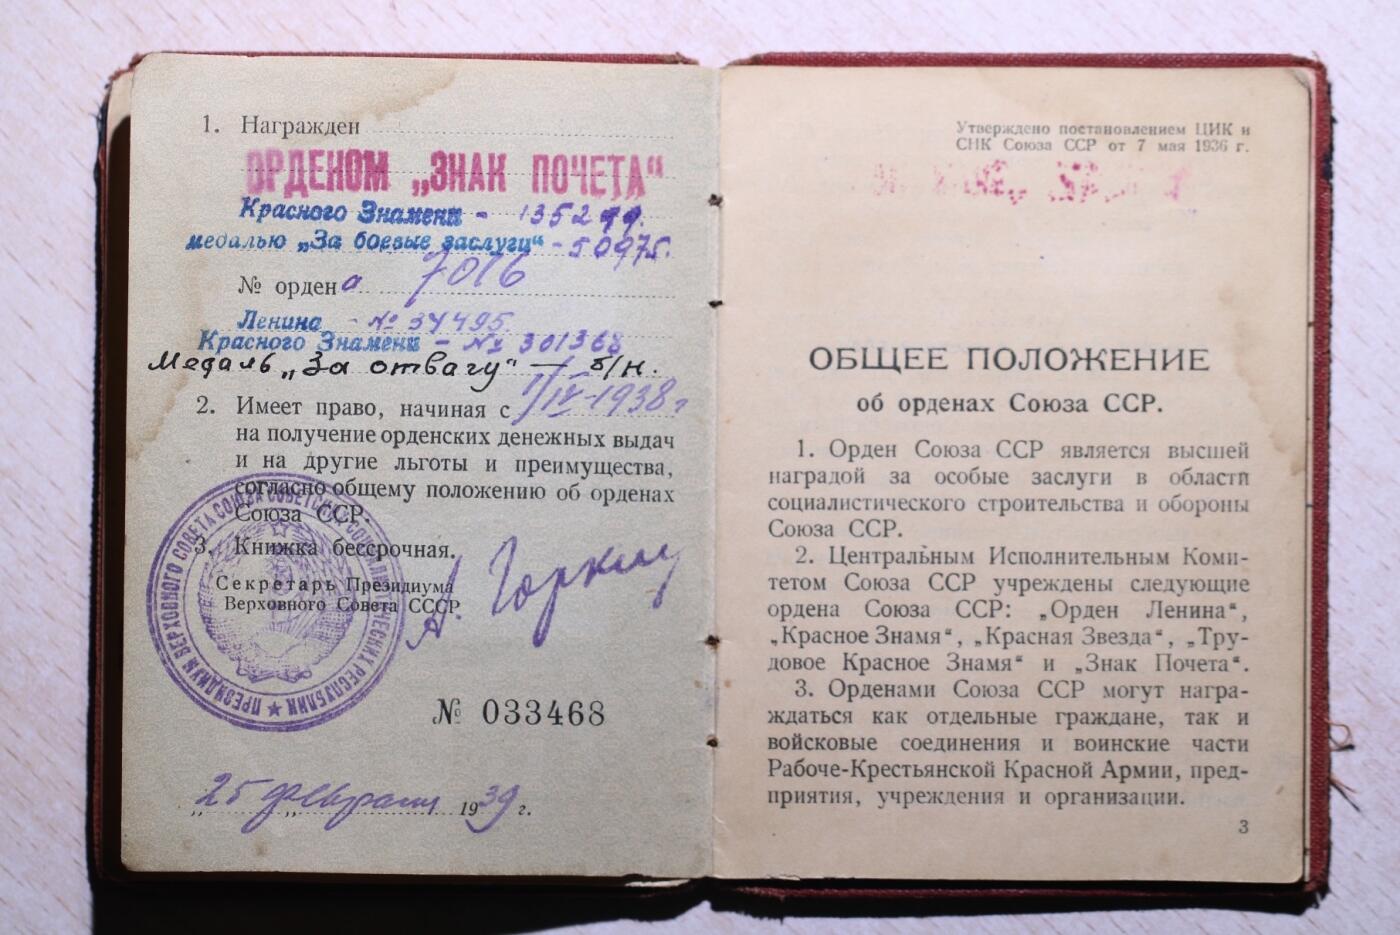 1. Награжден
ОРДЕНОМ „ЗНАК ПОЧЕТА“
Красного Знамени - 135299.
медалью „За боевые заслуги“ - 50975.
№ ордена 7016
Ленина - № 34495.
Красного Знамени - № 301368
Медаль „За отвагу“ — б/н.
2. Имеет право, начиная с 1/IV-1938 г
на получение орденских денежных выдач
и на другие льготы и преимущества,
согласно общему положению об орденах
Союза ССР.
3. Книжка бессрочная.
Секретарь Президиума
Верховного Совета СССР.
А. Горкин
ПРЕЗИДИУМ ВЕРХОВНОГО СОВЕТА СОЮЗА СОВЕТСКИХ СОЦИАЛИСТИЧЕСКИХ РЕСПУБЛИК
№ 033468
„25 февраля 1939 г.
Утверждено постановлением ЦИК и
СНК Союза ССР от 7 мая 1936 г.
ОБЩЕЕ ПОЛОЖЕНИЕ
об орденах Союза ССР.
1. Орден Союза ССР является высшей
наградой за особые заслуги в области
социалистического строительства и обороны
Союза ССР.
2. Центральным Исполнительным Коми-
тетом Союза ССР учреждены следующие
ордена Союза ССР: „Орден Ленина“,
„Красное Знамя“, „Красная Звезда“, „Тру-
довое Красное Знамя“ и „Знак Почета“.
3. Орденами Союза ССР могут награ-
ждаться как отдельные граждане, так и
войсковые соединения и воинские части
Рабоче-Крестьянской Красной Армии, пред-
приятия, учреждения и организации.
3